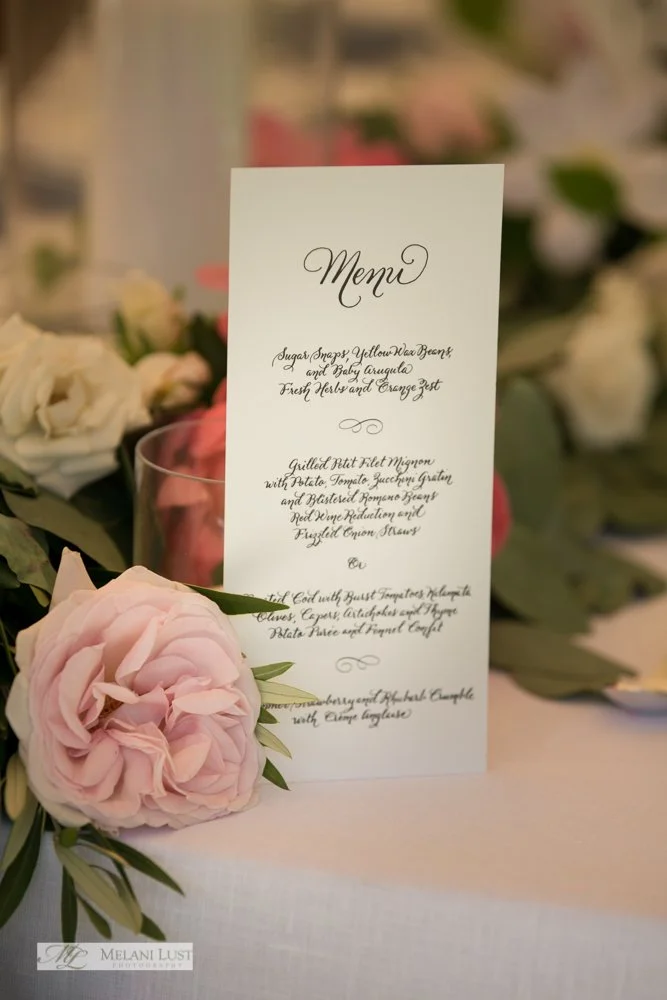 Menu
Sugar Snaps, Yellow Wax Beans,
and Baby Arugula
Fresh Herbs and Orange Zest
Grilled Petit Filet Mignon
with Potato, Tomato Zucchini Gratin
and Blistered Romano Beans
Red Wine Reduction and
Frizzled Onion Straws
Or
Cod with Burst Tomatoes Kalamata
Olives, Capers, Artichokes and Thyme
Potato Purée and Fennel Confit
Strawberry and Rhubarb Crumble
with Crème Anglaise
ML MELANI LUST
PHOTOGRAPHY